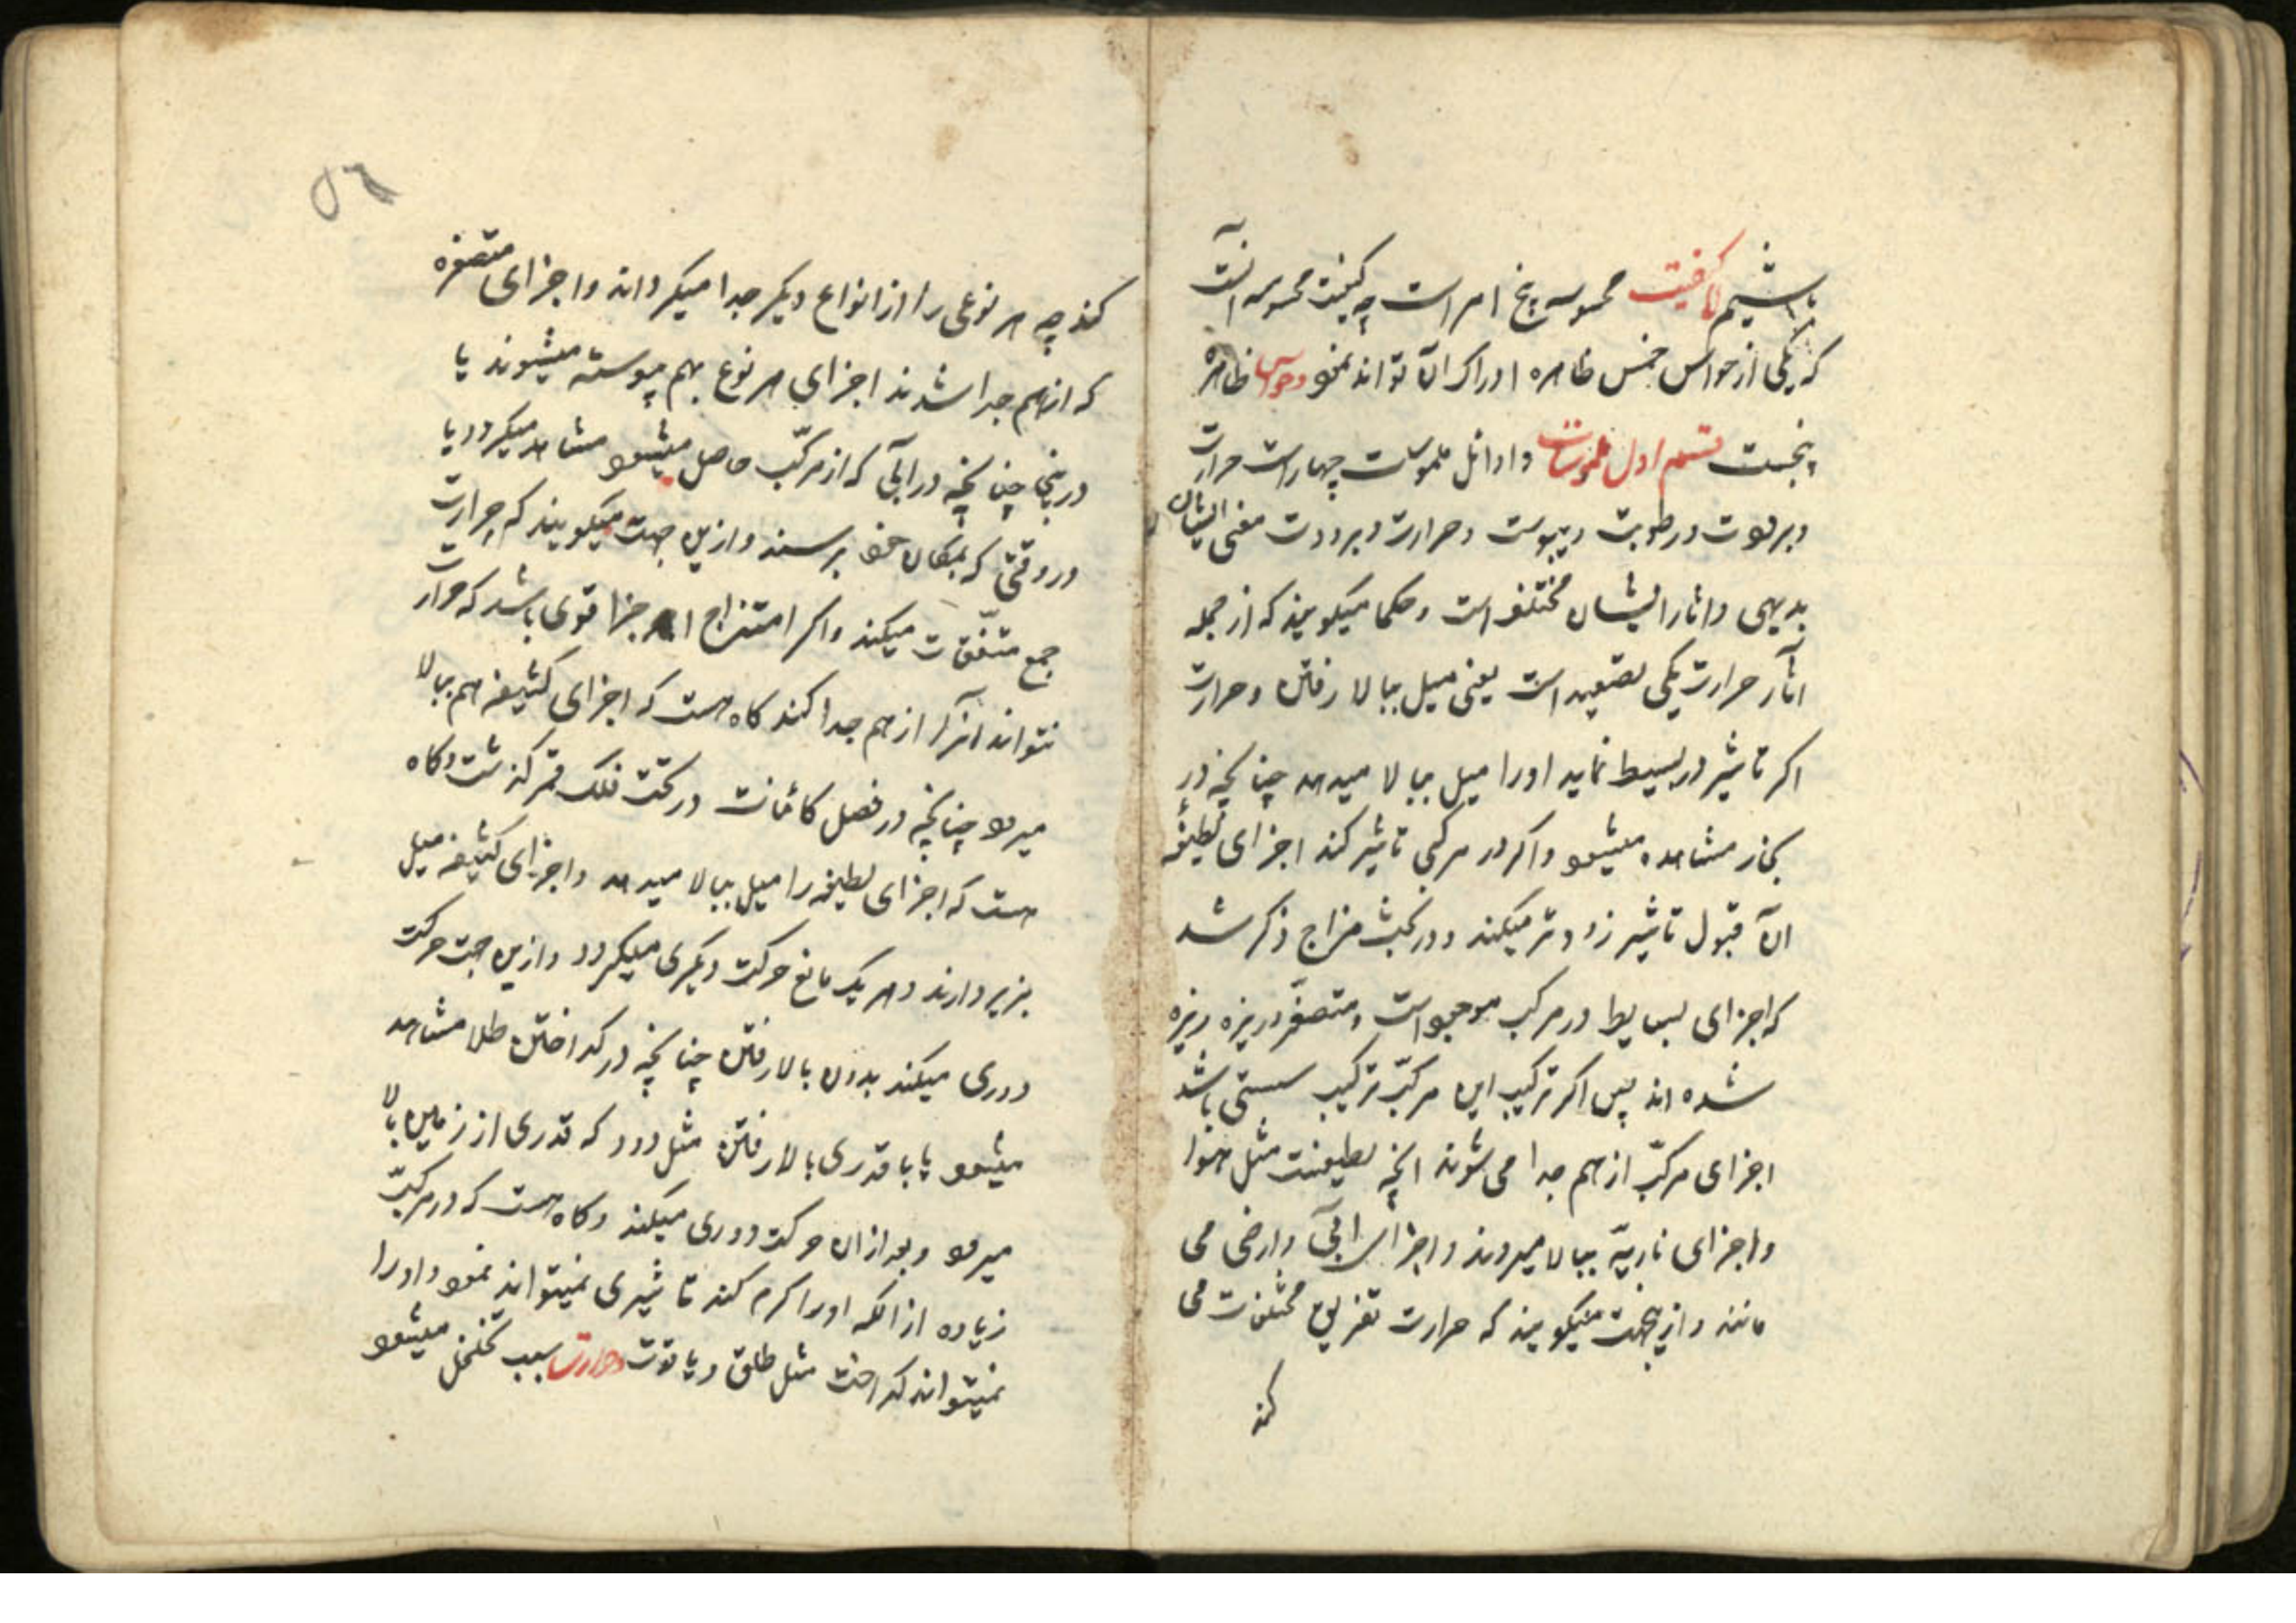 باشیم کیفیت محسوسه پنج امر است چه کیفیت محسوسه آنست
که یکی از حواس خمس ظاهره ادراک آن تواند نمود و حواس ظاهره
پنجست قسم اول ملموسات و اوائل ملموسات چهار است حرارت
و برودت و رطوبت و یبوست و حرارت و برودت معنی ایشان
بدیهی و اثار ایشان مختلف است و حکما میگویند که از جمله
اثار حرارت یکی تصعید است یعنی میل ببالا رفتن و حرارت
اکر تاثیر در بسیط نماید او را میل ببالا میدهد چنانچه در
بخار مشاهده میشود و اکر در مرکبی تاثیر کند اجزای لطیفه
آن قبول تاثیر زودتر میکند و در بحث مزاج ذکر شد
که اجزای بسایط در مرکب موجود است و متصغر و ریزه ریزه
شده اند پس اکر ترکیب این مرکب ترکیب سستی باشد
اجزای مرکب از هم جدا می شوند انچه لطیفست مثل هوا
و اجزای ناریه ببالا میروند و اجزای آبی و ارضی می
مانند و ازین جهت میگویند که حرارت تفریق مختلفات می
کند
۵۲
کند چه هر نوعی را از انواع دیکر جدا میکرداند و اجزای متصغره
که از هم جدا شدند اجزای هر نوع بهم پیوسته میشوند یا
در پنجا چنانچه در آبی که از مرکب حاصل میشود مشاهد میکردد یا
در وقتی که بمکان خود برسند و ازین جهت میگویند که حرارت
جمع متفقات میکند و اکر امتزاج اجزا قوی باشد که حرارت
نتواند آنرا از هم جدا کند کاه هست که اجزای کثیفه هم ببالا
میرود چنانچه در فصل کائنات در تحت فلک قمر گذشت و کاه
هست که اجزای لطیفه را میل ببالا میدهد و اجزای کثیفه میل
بزیر دارند و هر یک مانع حرکت دیکری میکردد و ازین جهت حرکت
دوری میکند بدون بالا رفتن چنانچه در کداختن طلا مشاهد
میشود یا با قدری بالا رفتن مثل دود که قدری از زمین بالا
میرود و بعد از ان حرکت دوری میکند و کاه هست که در مرکب
زیاده از انکه او را کرم کند تاثیری نمیتواند نمود و او را
نمیتواند کداخت مثل طلق و یاقوت و حرارت سبب تخلخل میشود